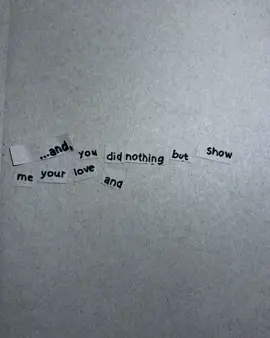 ...and, you did nothing but show
me your love and